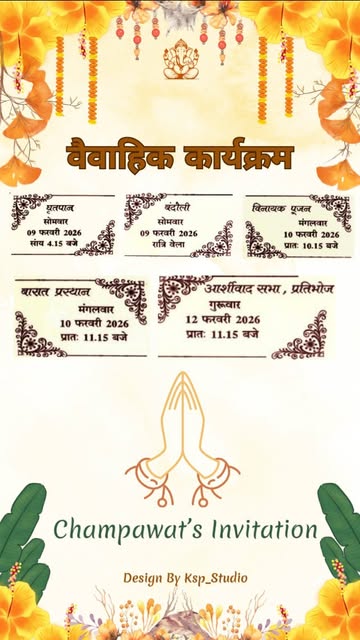 वैवाहिक कार्यक्रम
घृतपान
सोमवार
09 फरवरी 2026
सांय 4.15 बजे
बंदौली
सोमवार
09 फरवरी 2026
रात्रि वेला
विनायक पूजन
मंगलवार
10 फरवरी 2026
प्रातः 10.15 बजे
बारात प्रस्थान
मंगलवार
10 फरवरी 2026
प्रातः 11.15 बजे
आर्शीवाद सभा, प्रतिभोज
गुरूवार
12 फरवरी 2026
प्रातः 11.15 बजे
Champawat's Invitation
Design By Ksp_Studio